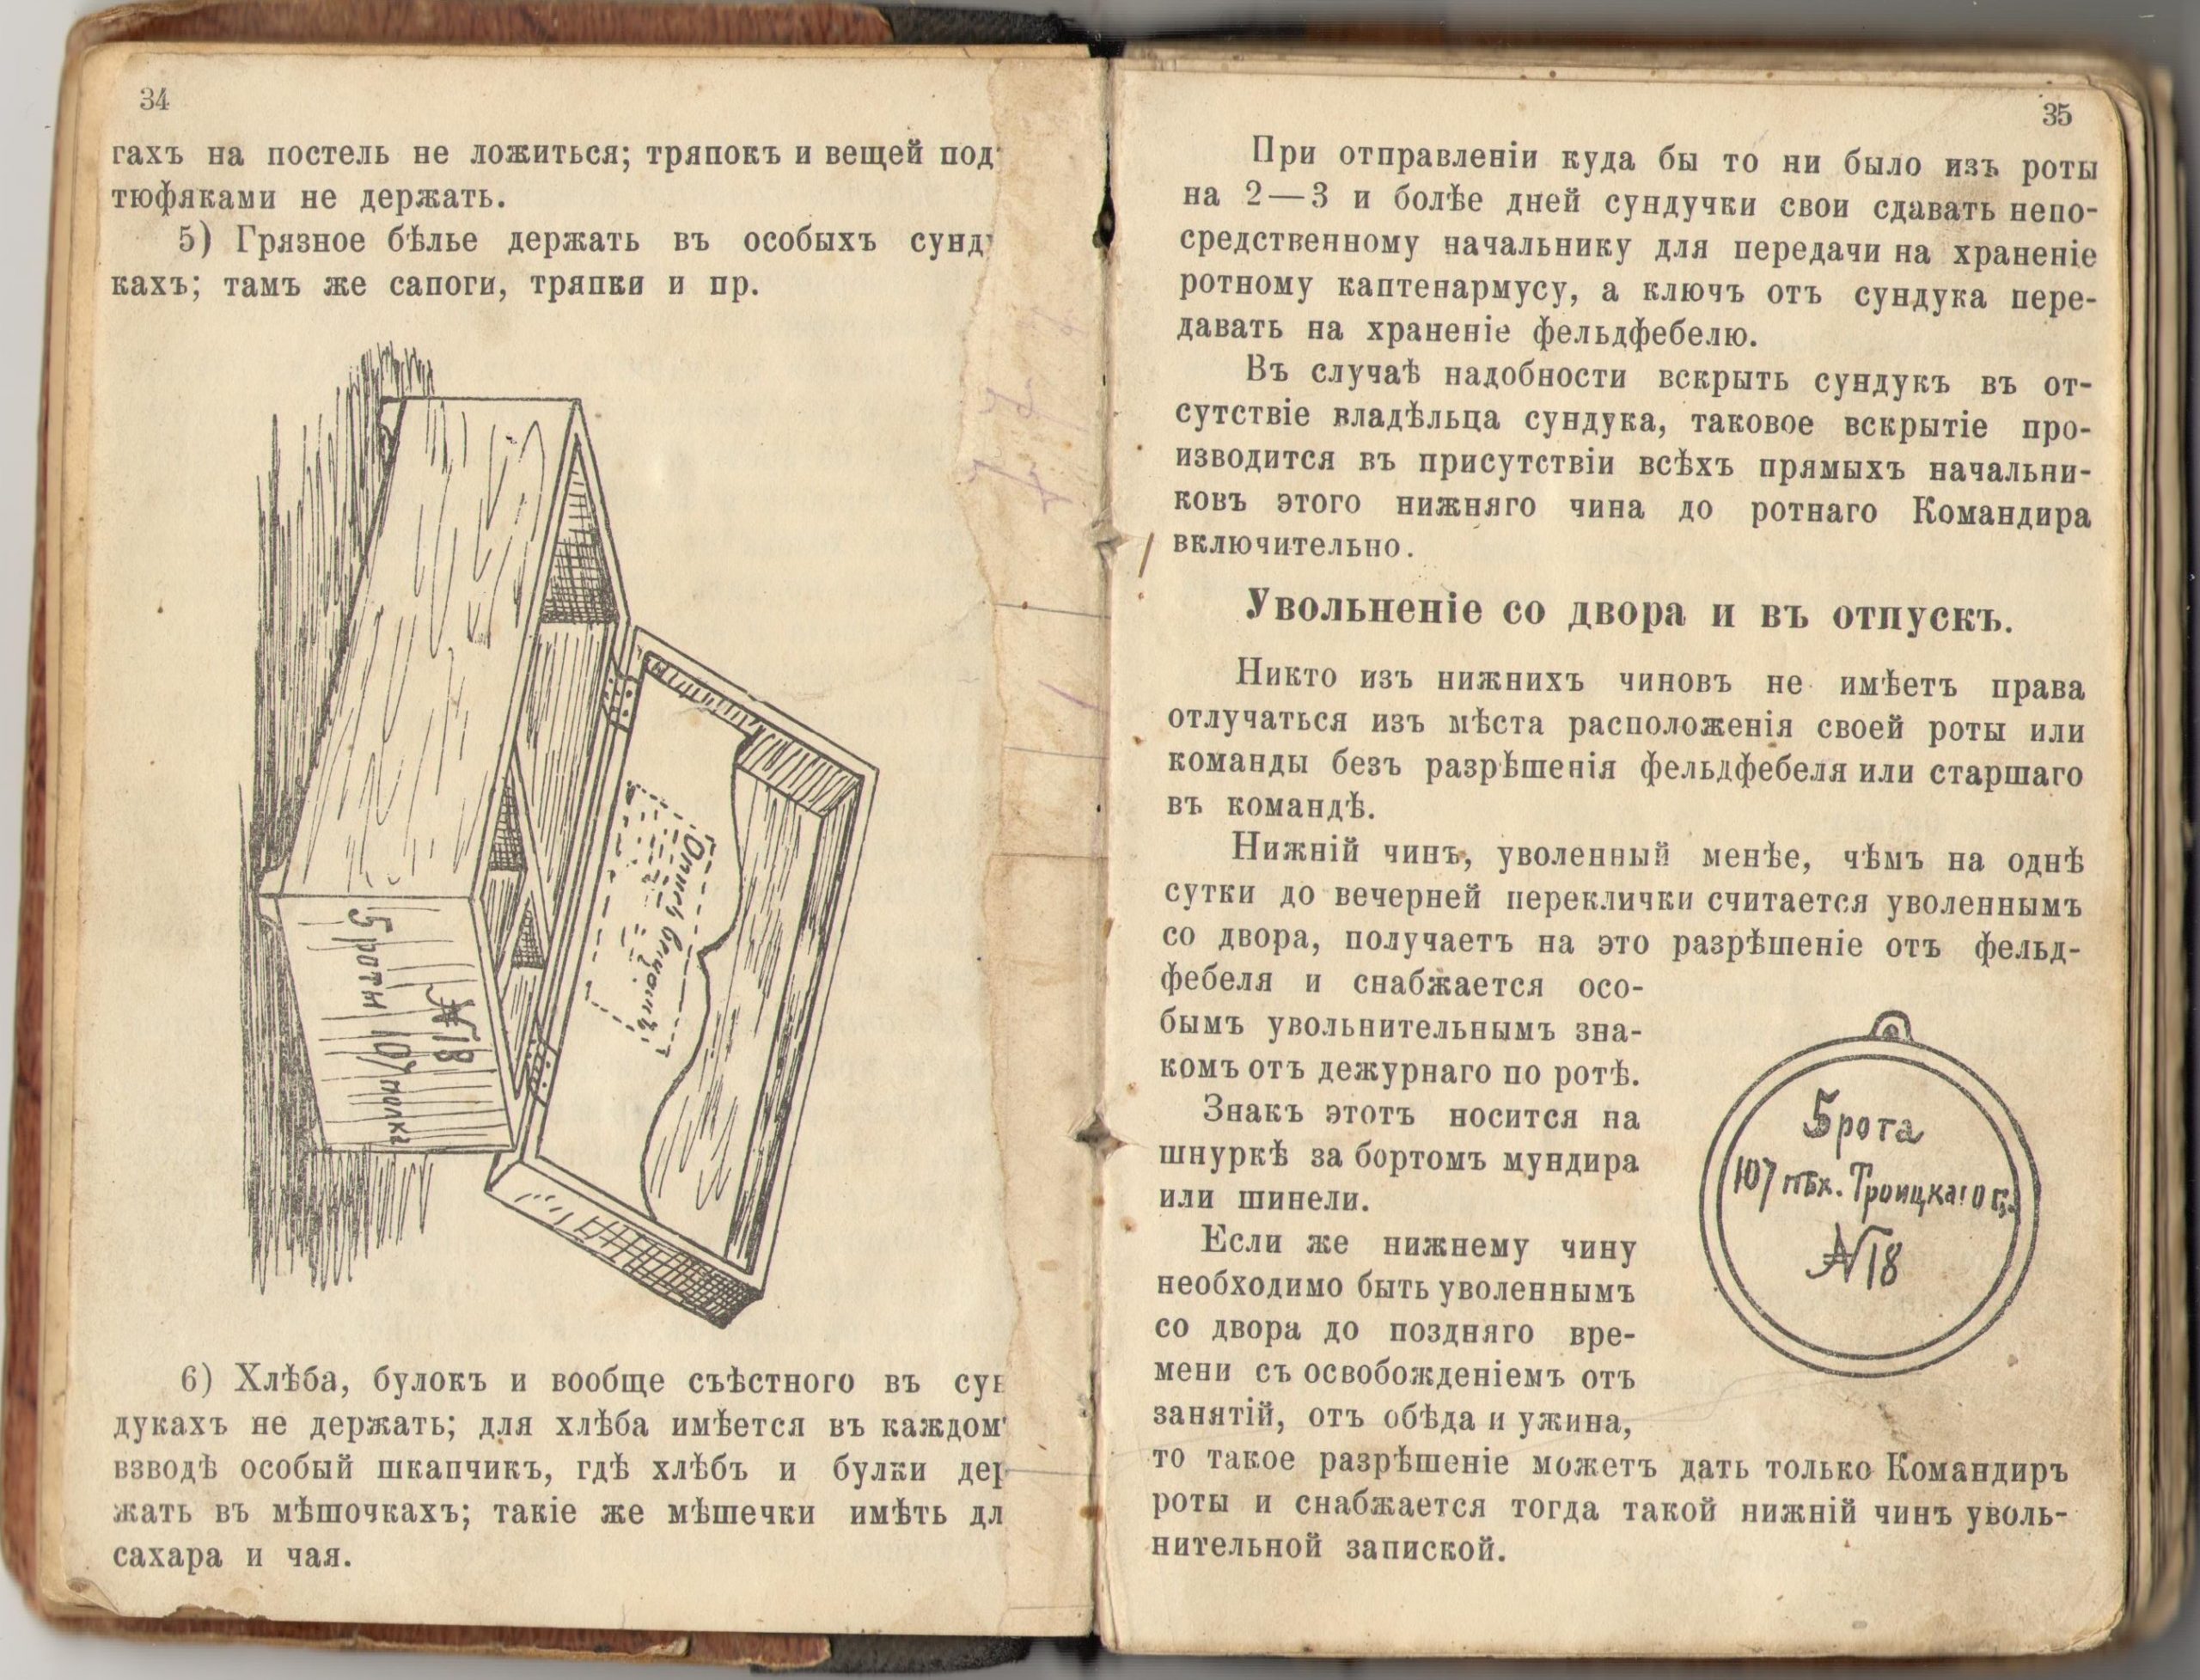 34
гахъ на постель не ложиться; тряпокъ и вещей под
тюфяками не держать.
5) Грязное бѣлье держать въ особыхъ сунд
кахъ; тамъ же сапоги, тряпки и пр.
Опись вещамъ
№ 18
5 роты 107 полка
6) Хлѣба, булокъ и вообще съѣстного въ сун
дукахъ не держать; для хлѣба имѣется въ каждом
взводѣ особый шкапчикъ, гдѣ хлѣбъ и булки дер
жать въ мѣшочкахъ; такіе же мѣшечки имѣть дл
сахара и чая.
35
При отправленіи куда бы то ни было изъ роты
на 2—3 и болѣе дней сундучки свои сдавать непо-
средственному начальнику для передачи на храненіе
ротному каптенармусу, а ключъ отъ сундука пере-
давать на храненіе фельдфебелю.
Въ случаѣ надобности вскрыть сундукъ въ от-
сутствіе владѣльца сундука, таковое вскрытіе про-
изводится въ присутствіи всѣхъ прямыхъ начальни-
ковъ этого нижняго чина до ротнаго Командира
включительно.
Увольненіе со двора и въ отпускъ.
Никто изъ нижнихъ чиновъ не имѣетъ права
отлучаться изъ мѣста расположенія своей роты или
команды безъ разрѣшенія фельдфебеля или старшаго
въ командѣ.
Нижній чинъ, уволенный менѣе, чѣмъ на однѣ
сутки до вечерней переклички считается уволеннымъ
со двора, получаетъ на это разрѣшеніе отъ фельд-
фебеля и снабжается осо-
бымъ увольнительнымъ зна-
комъ отъ дежурнаго по ротѣ.
Знакъ этотъ носится на
шнуркѣ за бортомъ мундира
или шинели.
Если же нижнему чину
необходимо быть уволеннымъ
со двора до поздняго вре-
мени съ освобожденіемъ отъ
занятій, отъ обѣда и ужина,
то такое разрѣшеніе можетъ дать только Командиръ
роты и снабжается тогда такой нижній чинъ уволь-
нительной запиской.
5 рота
107 пѣх. Троицкаго п.
№ 18